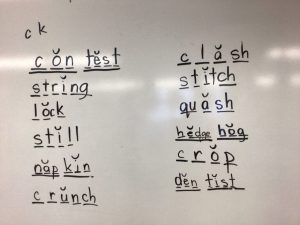 c k
cŏn tĕst
strĭng
lŏck
stĭll
năp kĭn
crŭnch
clăsh
stĭtch
quăsh
hĕdge hŏg
crŏp
dĕn tĭst